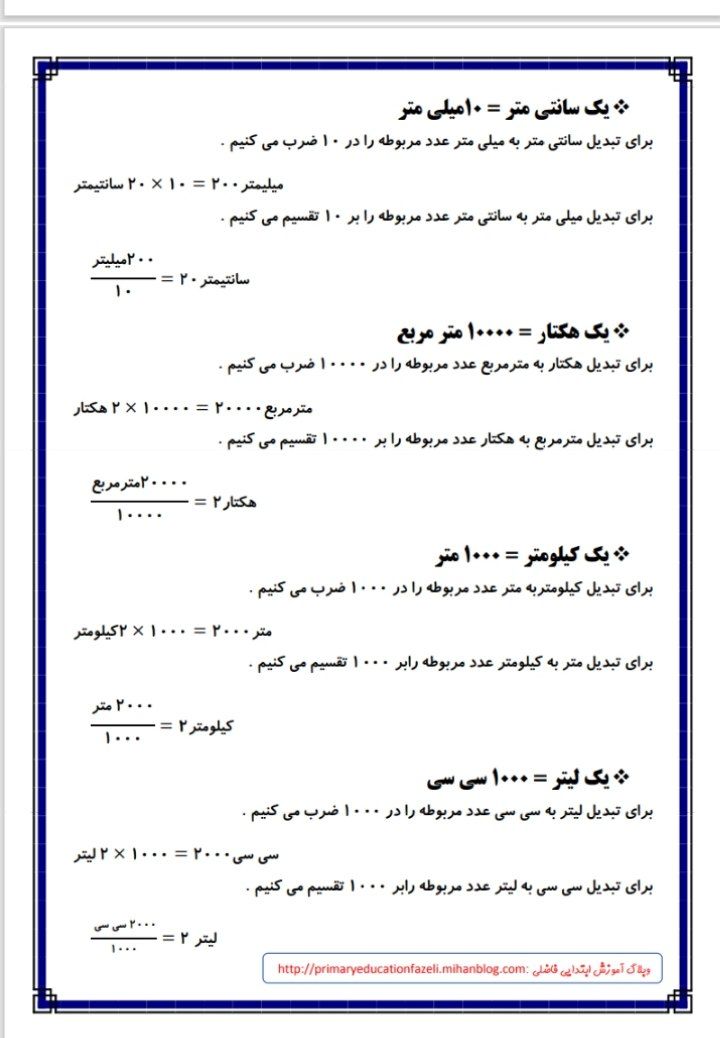 ❖ یک سانتی متر = ۱۰میلی متر
برای تبدیل سانتی متر به میلی متر عدد مربوطه را در ۱۰ ضرب می کنیم .
سانتیمتر ۲۰ × ۱۰ = ۲۰۰ میلیمتر
برای تبدیل میلی متر به سانتی متر عدد مربوطه را بر ۱۰ تقسیم می کنیم .
۲۰۰میلیتر
۱۰
= ۲۰ سانتیمتر
❖ یک هکتار = ۱۰۰۰۰ متر مربع
برای تبدیل هکتار به مترمربع عدد مربوطه را در ۱۰۰۰۰ ضرب می کنیم .
هکتار ۲ × ۱۰۰۰۰ = ۲۰۰۰۰ مترمربع
برای تبدیل مترمربع به هکتار عدد مربوطه را بر ۱۰۰۰۰ تقسیم می کنیم .
۲۰۰۰۰مترمربع
۱۰۰۰۰
= ۲ هکتار
❖ یک کیلومتر = ۱۰۰۰ متر
برای تبدیل کیلومتربه متر عدد مربوطه را در ۱۰۰۰ ضرب می کنیم .
کیلومتر۲ × ۱۰۰۰ = ۲۰۰۰ متر
برای تبدیل متر به کیلومتر عدد مربوطه رابر ۱۰۰۰ تقسیم می کنیم .
۲۰۰۰ متر
۱۰۰۰
= ۲ کیلومتر
❖ یک لیتر = ۱۰۰۰ سی سی
برای تبدیل لیتر به سی سی عدد مربوطه را در ۱۰۰۰ ضرب می کنیم .
لیتر ۲ × ۱۰۰۰ = ۲۰۰۰ سی سی
برای تبدیل سی سی به لیتر عدد مربوطه رابر ۱۰۰۰ تقسیم می کنیم .
۲۰۰۰ سی سی
۱۰۰۰
= ۲ لیتر
وبلاگ آموزش ابتدایی فاضلی :http://primaryeducationfazeli.mihanblog.com